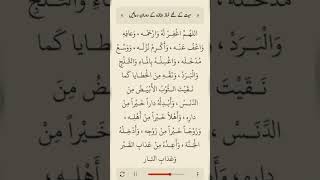 میت کے لئے نماز جنازہ کے دوران دعائیں
اللهُمَّ اغْفِرْ لَهُ وَارْحَمْهُ ، وَعَافِهِ
وَاعْفُ عَنْهُ ، وَأَكْرِمْ نُزُلَهُ ، وَوَسِّعْ
مُدْخَلَهُ ، وَاغْسِلْهُ بِالْمَاءِ وَالثَّلْجِ
وَالْبَرَدِ ، وَنَقِّهِ مِنَ الْخَطَايَا كَمَا
نَقَّيْتَ الثَّوْبَ الأَبْيَضَ مِنَ
الدَّنَسِ ، وَأَبْدِلْهُ دَاراً خَيْراً مِنْ
دَارِهِ ، وَأَهْلاً خَيْراً مِنْ أَهْلِهِ ،
وَزَوْجاً خَيْراً مِنْ زَوْجِهِ ، وَأَدْخِلْهُ
الْجَنَّةَ ، وَأَعِذْهُ مِنْ عَذَابِ القَبْرِ
وَعَذَابِ النَّارِ